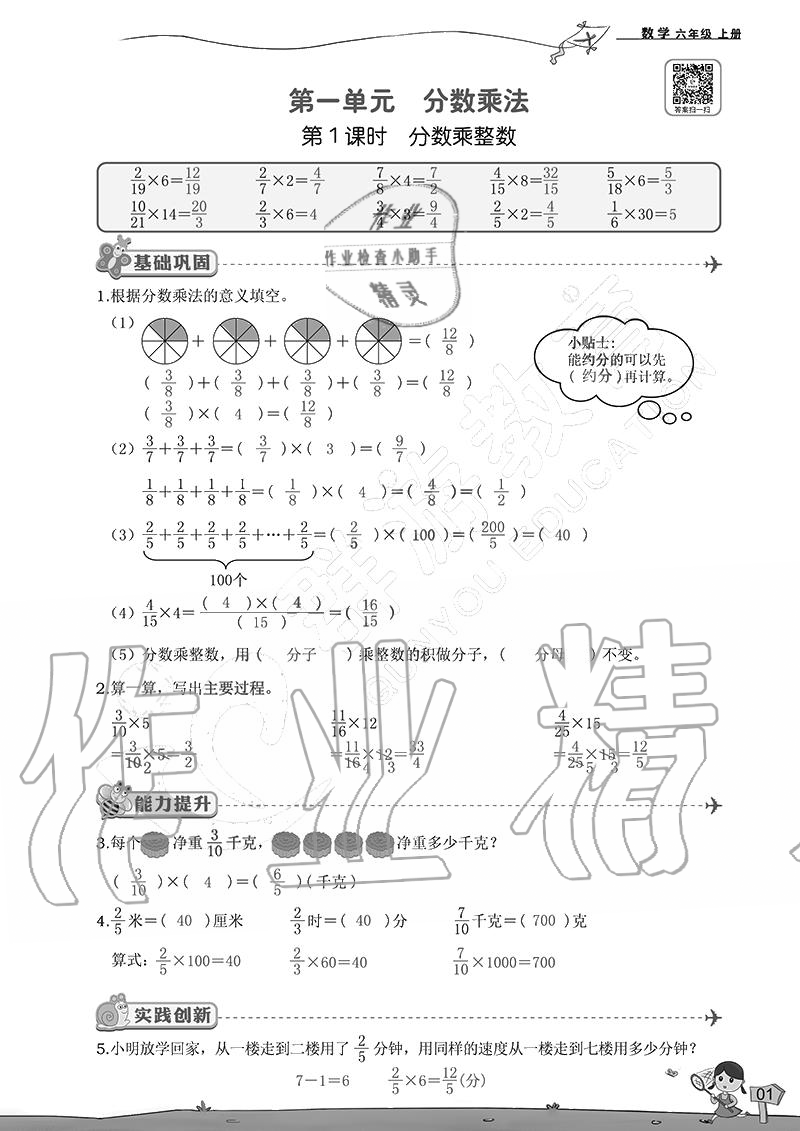 数学 六年级 上册
答案扫一扫
第一单元 分数乘法
第1课时 分数乘整数
2/19×6=12/19 2/7×2=4/7 7/8×4=7/2 4/15×8=32/15 5/18×6=5/3
10/21×14=20/3 2/3×6=4 3/4×3=9/4 2/5×2=4/5 1/6×30=5
作业
作业检查小助手
精灵
基础巩固
1.根据分数乘法的意义填空。
(1) + + + =( 12/8 )
( 3/8 )+( 3/8 )+( 3/8 )+( 3/8 )=( 12/8 )
( 3/8 )×( 4 )=( 12/8 )
小贴士:
能约分的可以先
( 约分 )再计算。
(2) 3/7+3/7+3/7=( 3/7 )×( 3 )=( 9/7 )
1/8+1/8+1/8+1/8=( 1/8 )×( 4 )=( 4/8 )=( 1/2 )
(3) 2/5+2/5+2/5+2/5+…+2/5=( 2/5 )×( 100 )=( 200/5 )=( 40 )
100个
(4) 4/15×4=( 4 )×( 4 )/( 15 )=( 16/15 )
(5) 分数乘整数,用( 分子 )乘整数的积做分子,( 分母 )不变。
2.算一算,写出主要过程。
3/10×5 11/16×12 4/25×15
=3/10 2×5=3/2 =11/16 4×12 3=33/4 =4/25 5×15 3=12/5
能力提升
3.每个 净重3/10千克, 净重多少千克?
( 3/10 )×( 4 )=( 6/5 )(千克)
4.2/5米=( 40 )厘米 2/3时=( 40 )分 7/10千克=( 700 )克
算式:2/5×100=40 2/3×60=40 7/10×1000=700
实践创新
5.小明放学回家,从一楼走到二楼用了2/5分钟,用同样的速度从一楼走到七楼用多少分钟?
7-1=6 2/5×6=12/5(分)
01
群游教育
QUNYOU EDUCATION
作业精